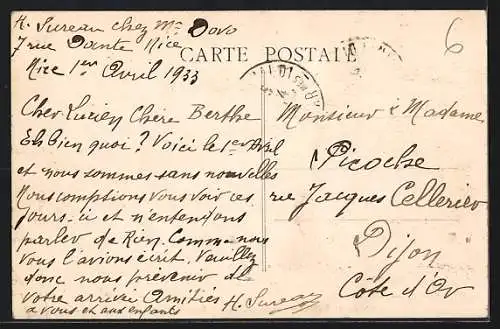 H. Sureau chez Mme Dovo
7 rue Dante Nice
Nice 1er Avril 1933
CARTE POSTALE
6
Cher Lucien Chère Berthe
Eh bien quoi? Voici le 1er Avril
et nous sommes sans nouvelles
Nous comptions vous voir ces
jours-ci et n'entendons
parler de Rien. Comme nous
vous l'avions écrit. Veuillez
donc nous prévenir de
votre arrivée Amitiés
a vous et aux enfants
H. Sureau
Monsieur & Madame
Picoche
rue Jacques Cellerier
Dijon
Côte d'Or